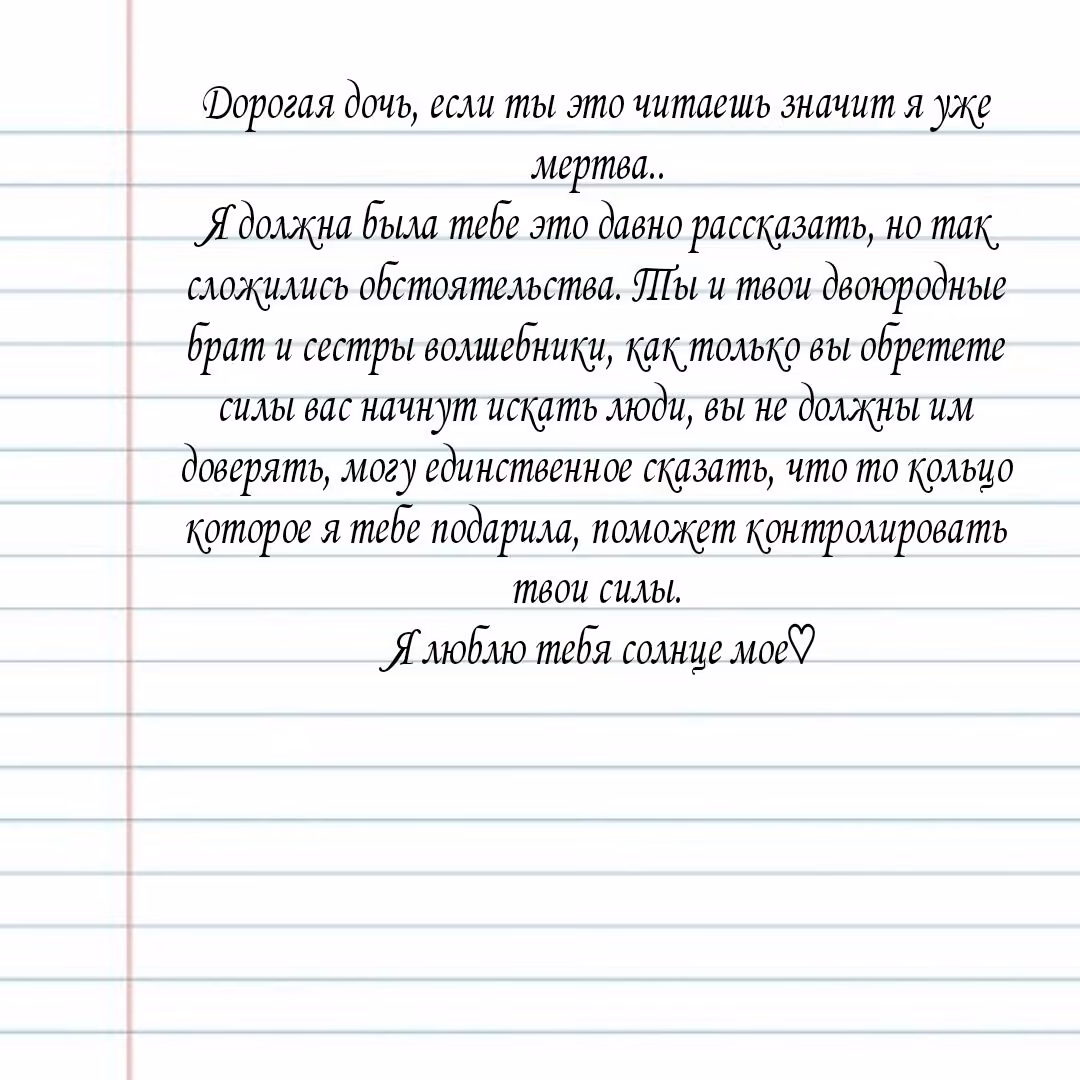 Дорогая дочь, если ты это читаешь значит я уже
мертва..
Я должна была тебе это давно рассказать, но так
сложились обстоятельства. Ты и твои двоюродные
брат и сестры волшебники, как только вы обретете
силы вас начнут искать люди, вы не должны им
доверять, могу единственное сказать, что то кольцо
которое я тебе подарила, поможет контролировать
твои силы.
Я люблю тебя солнце мое♡